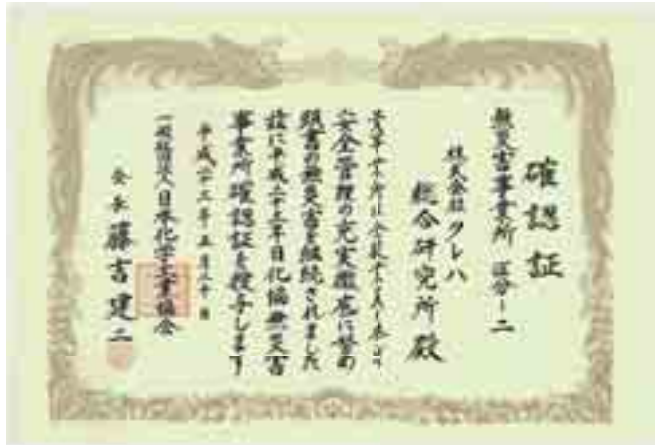 確認証
無災害事業所 区分一二
株式会社 クレハ
総合研究所殿
安全管理の充実徹底に努め
頭書の無災害を継続されました
故に平成二十三年日化協無災害
事業所確認証を授与します
平成二十三年五月
一般社団法人日本化学工業協会
会長 藤吉建二